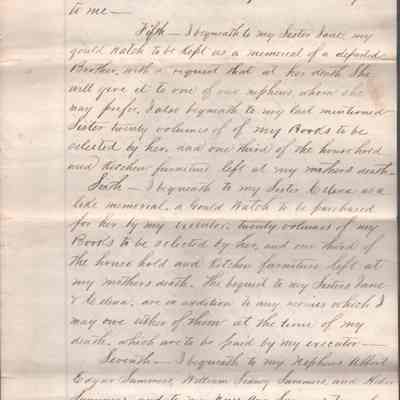 to me —
Fifth — I bequeath to my Sister Jane, my
gould watch to be kept as a memorial of a departed
Brother, with a request that at her death she
will give it to one of our nephews whom she
may prefer. I also bequeath to my last mentioned
Sister twenty volumes of of my Books to be
selected by her, and one third of the household
and Kitchen furniture left at my mothers death.
Sixth — I bequeath to my Sister Celena as a
like memorial, a Gould Watch to be purchased
for her by my executor, twenty volumes of my
Books to be selected by her, and one third of
the house hold and Kitchen furniture left at
my mothers death. The bequest to my Sisters Jane
& Celena, are in addition to any monies which I
may owe either of them at the time of my
death, which are to be paid by my executor —
Seventh — I bequeath to my Nephews Albert
Edgar Summers, William Sidney Summers, and
Summers, and to my